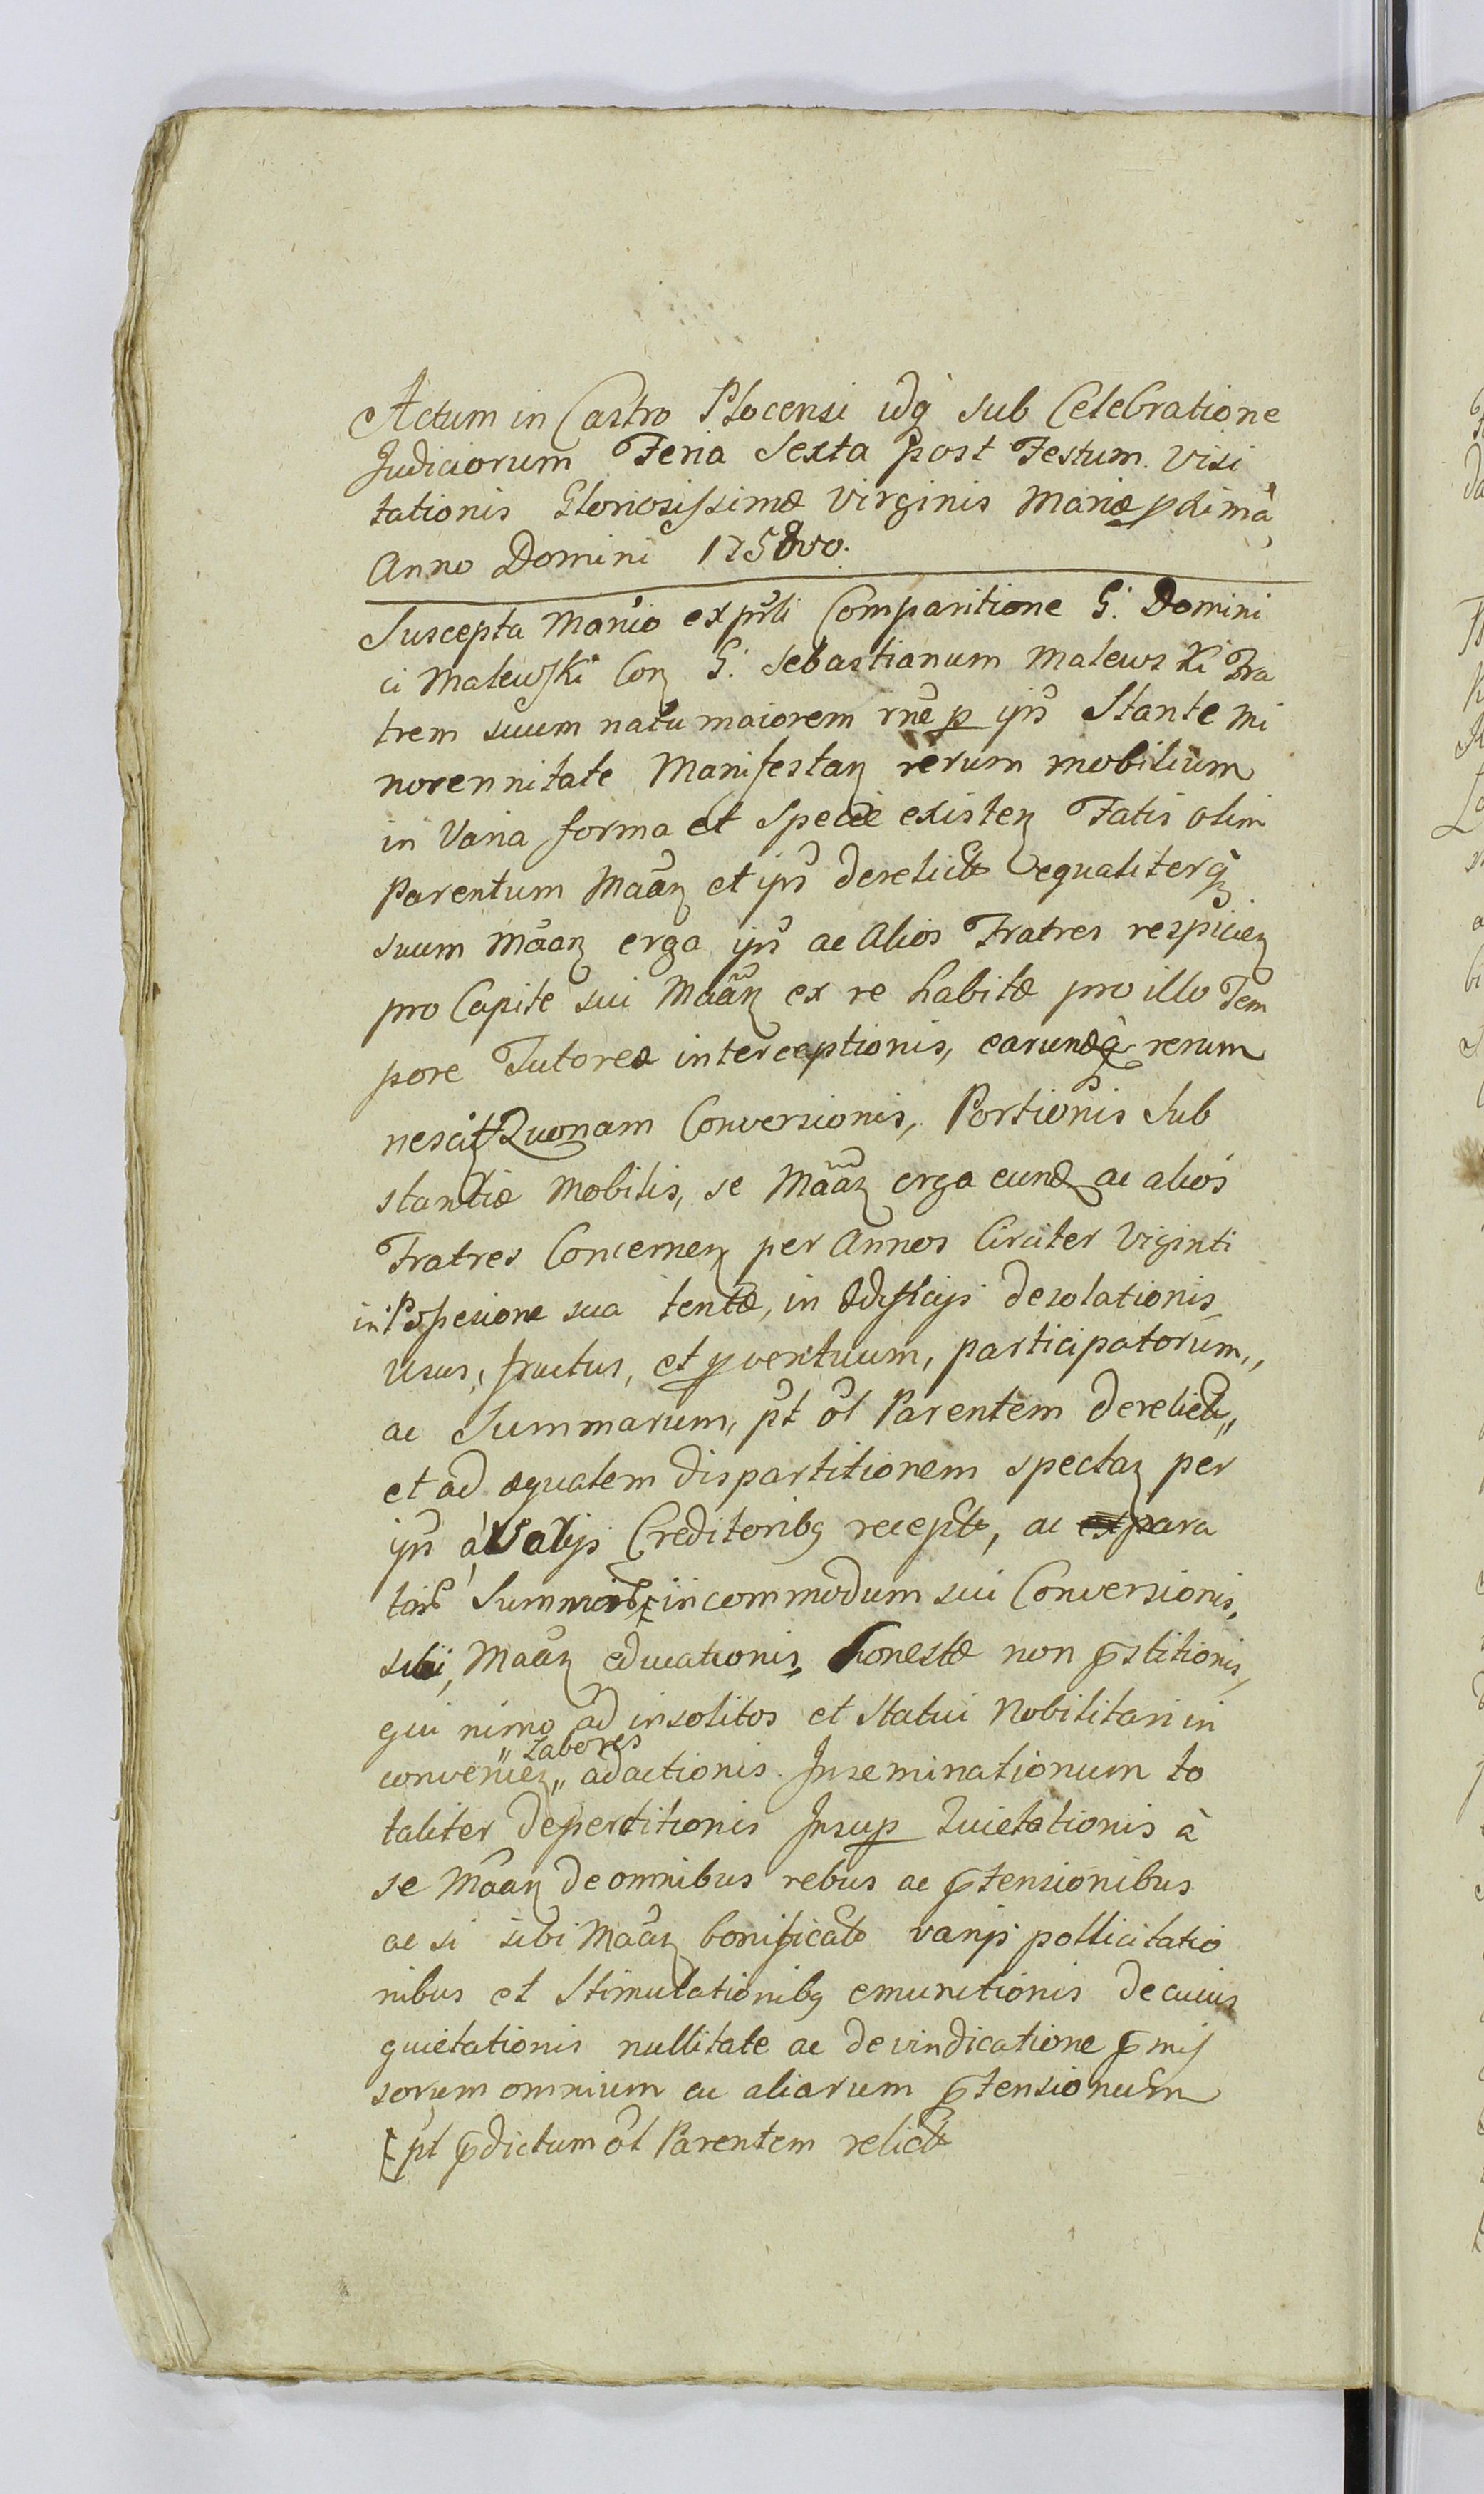 Actum in Castro Plocensi idq̃ sub Celebratione
Judiciorum Feria Sexta post Festum Visi
tationis Gloriosissimæ Virginis Mariæ pximã
Anno Domini 1758vo.
Suscepta Manio ex psli Comparitione G. Domini
ci Malewski Con G. Sebastianum Malewski Fra
trem suum natu maiorem rne p ips Stante mi
norennitate Manifestan rerum mobilium
in Varia forma et specie existen Fatis olim
Parentum Maan et ips derelict equaliterq̃
suum Maan erga ips ac Alios Fratres respicien
pro Capite sui Maan ex re habitæ pro illo Tem
pore Tutoreæ interceptionis, earundq̃ rerum
nescit Quonam Conversionis, Portionis Sub
stantiæ Mobilis, se Maan erga eund ac alios
Fratres Concernen per Annos Circiter Viginti
in Possesione sua tentæ, in Ædificijs desolationis,
usus, fructus, et pventuum, participatorum,,
ac Summarum, pt ol Parentem derelict,,
et ad æqualem dispartitionem spectan per
ips à Varijs Creditoribq recept, ac para
tarb Summarb in commodum sui Conversionis,
sibi, Maan educationis, honestæ non pstitionis,
qui nimo ad insolitos et Statui Nobilitari in
convenien,, Labores adactionis. Inseminationum to
taliter deperditionis Insup Quietationis à
se Maan de omnibus rebus ac ptensionibus
ac si sibi Maan bonificat varijs pollicitatio
nibus et Stimulationibq emunctionis de cuius
quietationis nullitate ac de vindicatione pmis
sorum omnium ac aliarum ptensionum
pt pdictum ol Parentem relict